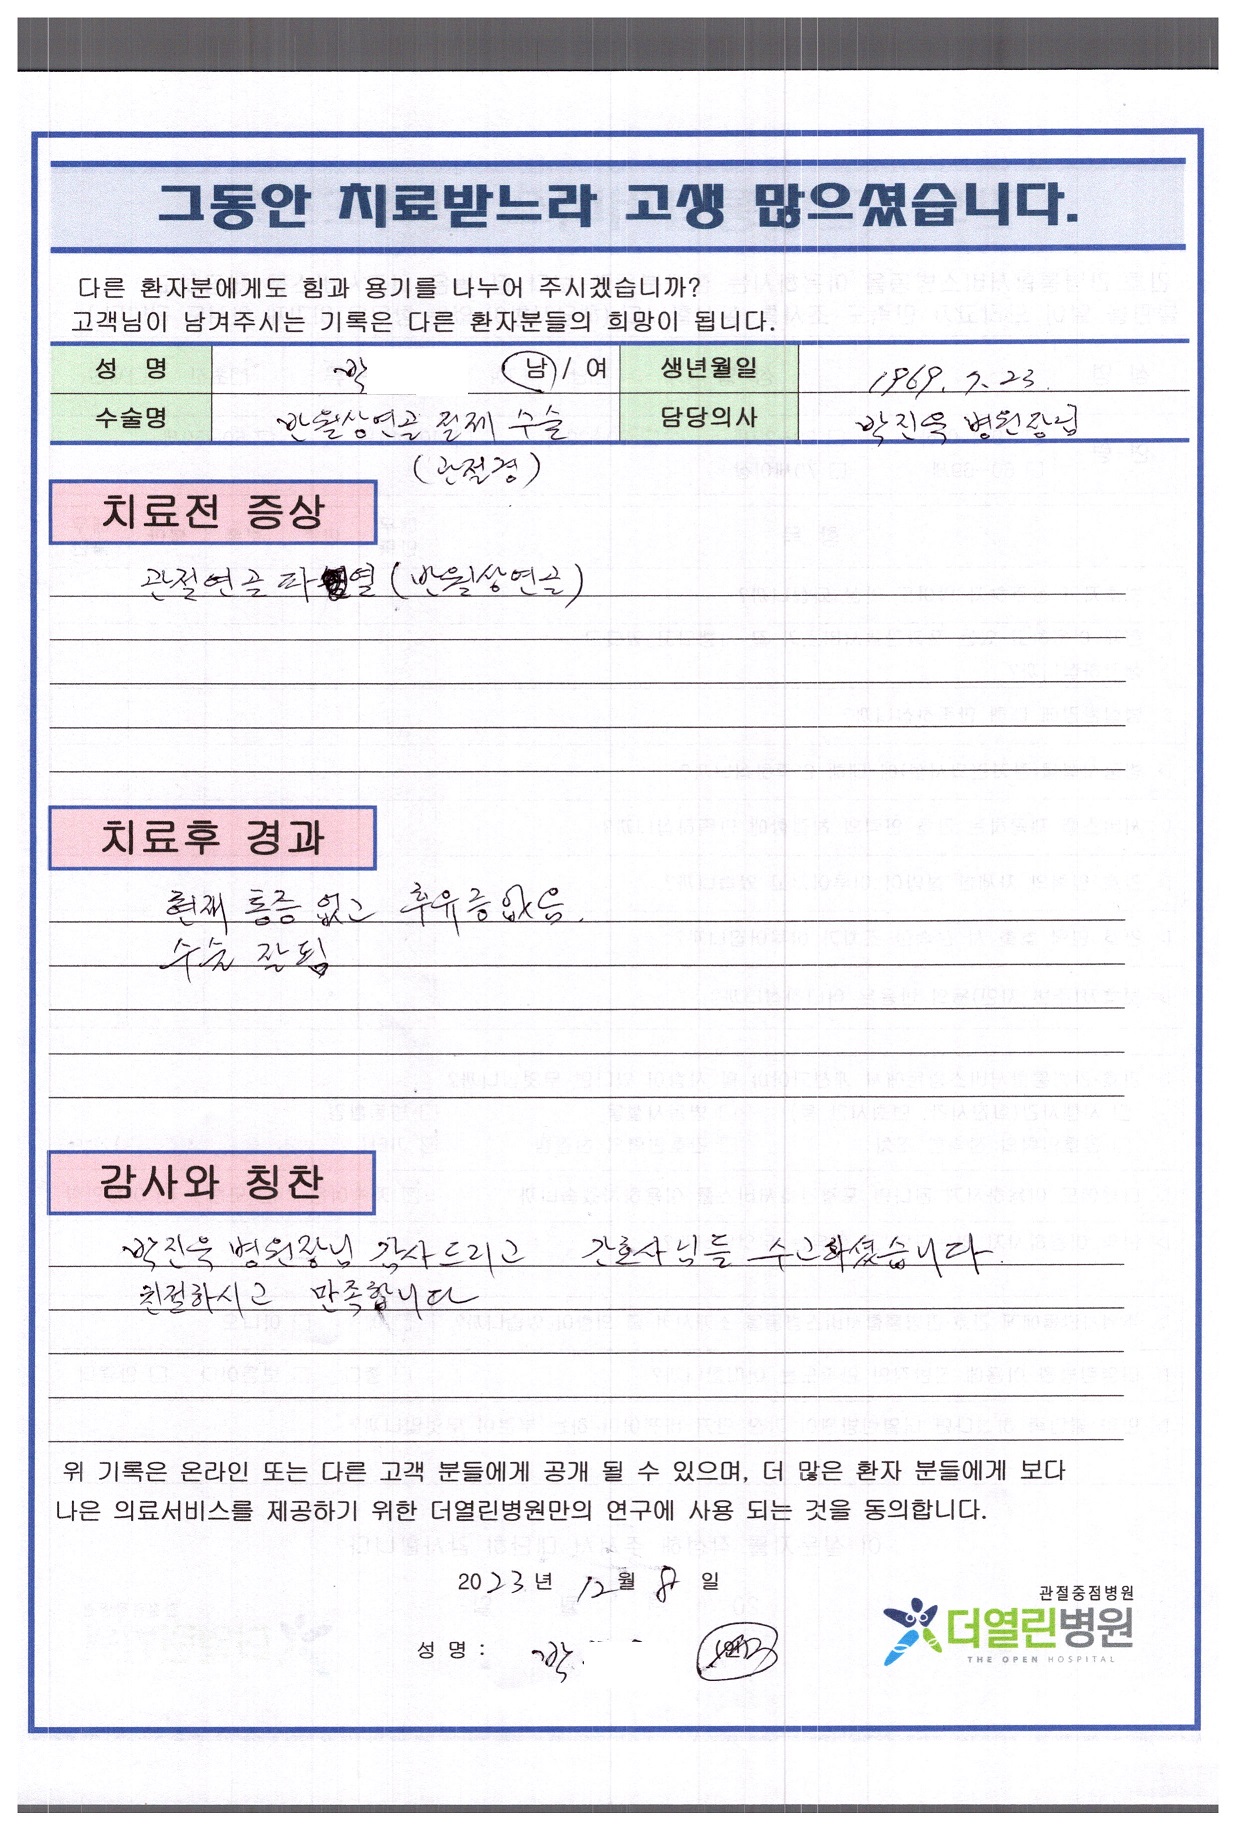 그동안 치료받느라 고생 많으셨습니다.
다른 환자분에게도 힘과 용기를 나누어 주시겠습니까?
고객님이 남겨주시는 기록은 다른 환자분들의 희망이 됩니다.
성 명 박 남 / 여 생년월일 1969. 7. 23.
수술명 반월상연골 절제 수술 담당의사 박진욱 병원장님
(관절경)
치료전 증상
관절연골 파열 (반월상연골)
치료후 경과
현재 통증 없고 후유증없음.
수술 잘됨
감사와 칭찬
박진욱 병원장님 감사드리고 간호사님들 수고하셨습니다.
친절하시고 만족합니다
위 기록은 온라인 또는 다른 고객 분들에게 공개 될 수 있으며, 더 많은 환자 분들에게 보다
나은 의료서비스를 제공하기 위한 더열린병원만의 연구에 사용 되는 것을 동의합니다.
2023년 12월 8일
성 명 : 박
관절중점병원
더열린병원
THE OPEN HOSPITAL